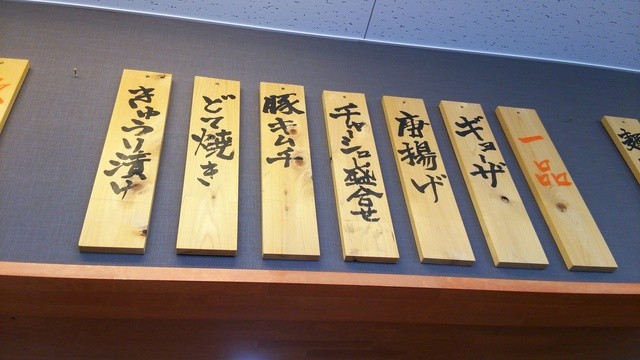 一品
ギョーザ
唐揚げ
チャーシュー盛合せ
豚キムチ
どて焼き
きゅうり漬け